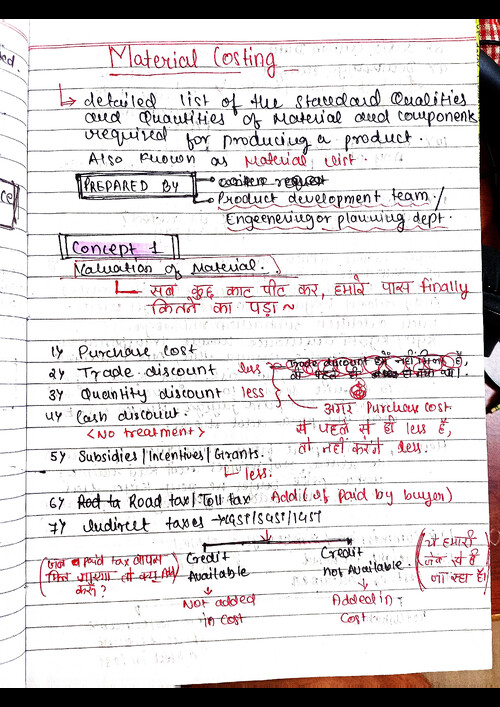 Material Costing
↳ detailed list of the standard Qualities
and Quantities of Material and component
required for producing a product.
Also known as Material list.
PREPARED BY
Product development team /
Engeenering or planning dept.
Concept 1
Valuation of Material.
सब कुछ काट पीट कर, हमारे पास finally
कितने का पड़ा ~
1) Purchase Cost
2) Trade discount less
3) Quantity discount less
4) Cash discount.
<No treatment>
अगर Purchase cost
में पहले से ही less है,
तो नहीं करेंगे less.
5) Subsidies / Incentives / Grants.
↳ less.
6) Road tax / Toll tax Add (if paid by buyer)
7) Indirect taxes → CGST/SGST/IGST
Credit
Available
Not added
in cost
Credit
not Available.
Added in
Cost
ये हमारी
जेब से ही
जा रहा है।
paid tax वापस
मिल जाएगा तो क्यूं Add
करूं ?